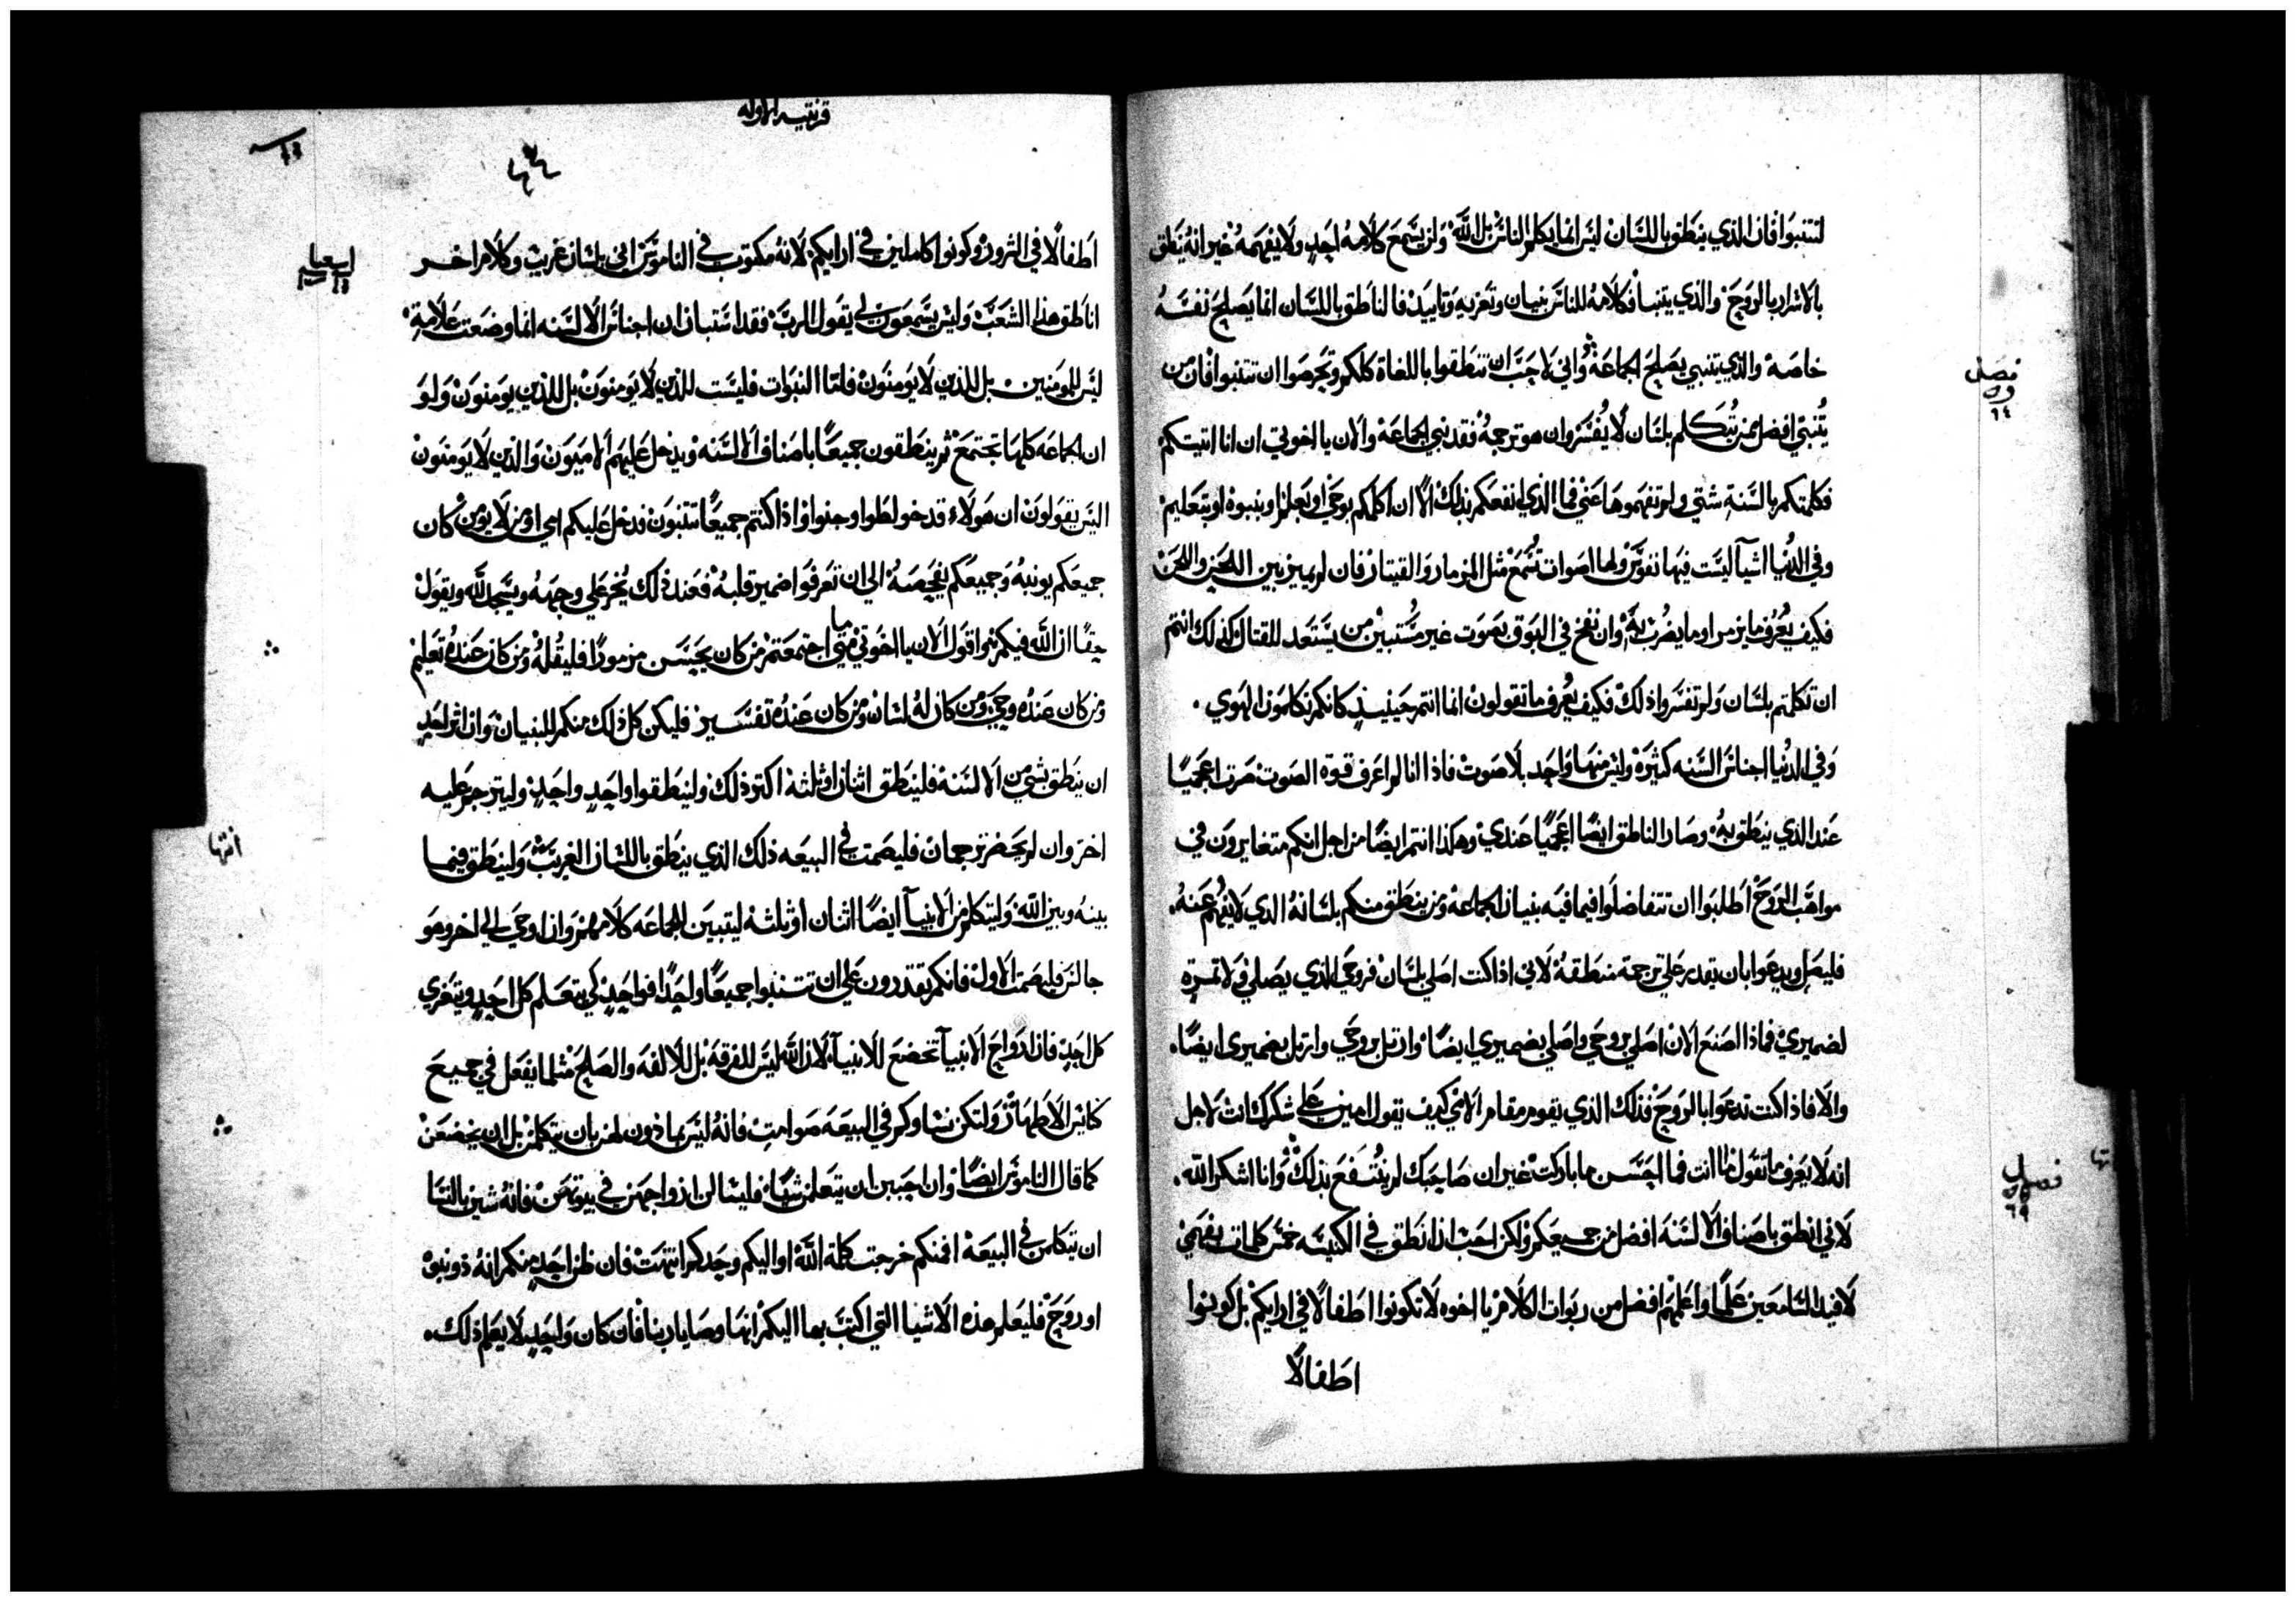 لتتنبوا فان الذي ينطق باللسان ليس انما يكلم الناس بل الله ولن يسمع كلامه احد ولا يفهمه غير انه ينطق
بالاسرار بالروح والذي يتنبا فكلامه للناس بنيان وتعزيه وتاييد فالناطق باللسان انما يصلح نفسه
خاصه والذي يتنبي يصلح الجماعة واني لاحب ان تنطقوا باللغاة كلكم وتحرصوا ان تتنبوا فان من
يتنبي افضل ممن يتكلم بلسان لا يفسر وان هو ترجمه فقد نبي الجماعة والان يا اخوتي ان انا اتيتكم
فكلمتكم بالسنة شتي ولم تفهموها عني فما الذي انفعكم بذلك الا ان اكلمكم بوحي او بعلم او بنبوه او بتعليم
وفي الدنيا اشيآ ليست فيها نفوس ولها اصوات تسمع مثل المزمار والقيتار فان لم يميز بين اللحن واللحن
فكيف يعرف ما يزمر او ما يضرب به وان نفخ في البوق بصوت غير مستبين من يستعد للقتال كذلك انتم
ان تكلمتم بلسان ولم تفسروا ذلك فكيف يعرف ما تقولون انما انتم حينيذ كانكم تكلمون الهوي .
وفي الدنيا اجناس السنه كثيرة وليس منها واحد بلا صوت فاذا انا لم اعرف قوة الصوت صرت اعجميا
عند الذي ينطق به وصار الناطق ايضا اعجميا عندي وهكذا انتم ايضا من اجل انكم متغايرون في
مواهب الروح اطلبوا ان تتفاضلوا فيما فيه بنيان الجماعة ومن ينطق منكم بلسانه الذي لا يفهم عنه .
فليصل ويدعوا بان يقدر علي ترجمة منطقه لاني اذا كنت اصلي بلسان فروحي الذي يصلي ولا تمره
لضميري فماذا اصنع الان اصلي بروحي واصلي بضميري ايضا وارتل بروحي وارتل بضميري ايضا .
والا فاذا كنت تدعوا بالروح فذلك الذي يقوم مقام الامي كيف يقول امين علي شكرك انت لاجل
انه لا يعرف ما تقول انت فما احسن ما باركت غير ان صاحبك لم ينتفع بذلك وانا اشكر الله .
لاني انطق باصناف الالسنه افضل من جميعكم ولكن احب ان انطق في الكنيسه خمس كلمات بفهمي
لافيد السامعين علما واعلمهم افضل من ربوات الكلام يا اخوه لا تكونوا اطفالا في ارايكم بل كونوا
اطفالا
فصل
٦٤
فصل
قرنتيه الاوله
اطفالا في الشرور وكونوا كاملين في ارايكم لانه مكتوب في الناموس اني بلسان غريب وكلام اخر
اناطق هذا الشعب وليس يسمعون لي يقول الرب فقد استبان ان اجناس الالسنه انما وضعت علامة
ليس للمومنين بل للذين لا يومنون فاما النبوات فليست للذين لا يومنون بل للذين يومنون ولو
ان الجماعه كلها تجتمع ثم ينطقون جميعا باصناف الالسنه ويدخل عليهم الاميون والذين لا يومنون
اليس يقولون ان هولاء قد خولطوا وجنوا واذا كنتم جميعا تتنبون فدخل عليكم امي او من لا يومن كان
جميعكم يونبه وجميعكم يفحصه الي ان تعرفوا ضمير قلبه فعند ذلك يخر علي وجهه ويسجد لله ويقول
حقا ان الله فيكم واقول الان يا اخوتي متي ما اجتمعتم من كان يحسن مزمورا فليقله ومن كان عنده تعليم
ومن كان عنده وحي ومن كان له لسان ومن كان عنده تفسير فليكن كل ذلك منكم للبنيان وان اثر احد
ان ينطق بشي من الالسنة فلينطق اثنان او ثلثة اكتر ذلك ولينطقوا واحد واحد وليترجم عليه
اخر وان لم يحضر ترجمان فليصمت في البيعه ذلك الذي ينطق باللسان الغريب ولينطق فيما
بينه وبين الله وليتكلم من الانبيآ ايضا اثنان او ثلثه ليتبين الجماعه كلامهم وان اوحي الي اخر وهو
جالس فليصمت الاول فانكم تقدرون علي ان تتنبوا جميعا واحدا فواحد كي يتعلم كل احد ويتعزي
كل احد فان ارواح الانبيآ تخضع للانبيآ لان الله ليس للفرقة بل للالفه والصلح مثلما يفعل في جميع
كنايس الاطهار ولتكن نساوكم في البيعه صوامت فانه ليس ماذون لهن بان يتكلمن بل ان يخضعن
كما قال الناموس ايضا وان احببن ان يتعلمن شيا فليسالن ازواجهن في بيوتهن فانه شين بالنسا
ان يتكلمن في البيعة افمنكم خرجت كلمة الله او اليكم وحدكم انتهت فان ظن احد منكم انه ذو نبوة
او روح فليعلم هذه الاشيا التي اكتب بها اليكم انها وصايا ربنا فان كان واحد لا يعلم ذلك .
اشعيا
انتها